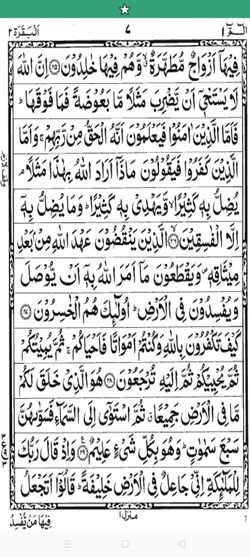 البقرة ٢ ٧ الٓمّٓ ١
فِيْهَآ اَزْوَاجٌ مُّطَهَّرَةٌ ۙ وَّهُمْ فِيْهَا خٰلِدُوْنَ ﴿۲۵﴾ اِنَّ اللّٰهَ
لَا يَسْتَحْيٖٓ اَنْ يَّضْرِبَ مَثَلًا مَّا بَعُوْضَةً فَمَا فَوْقَهَا ؕ
فَاَمَّا الَّذِيْنَ اٰمَنُوْا فَيَعْلَمُوْنَ اَنَّهُ الْحَقُّ مِنْ رَّبِّهِمْ ۚ وَاَمَّا
الَّذِيْنَ كَفَرُوْا فَيَقُوْلُوْنَ مَاذَآ اَرَادَ اللّٰهُ بِهٰذَا مَثَلًا ۘ
يُضِلُّ بِهٖ كَثِيْرًا ۙ وَّيَهْدِيْ بِهٖ كَثِيْرًا ؕ وَمَا يُضِلُّ بِهٖٓ
اِلَّا الْفٰسِقِيْنَ ﴿۲۶﴾ الَّذِيْنَ يَنْقُضُوْنَ عَهْدَ اللّٰهِ مِنْۢ بَعْدِ
مِيْثَاقِهٖ ۪ وَيَقْطَعُوْنَ مَآ اَمَرَ اللّٰهُ بِهٖٓ اَنْ يُّوْصَلَ
وَيُفْسِدُوْنَ فِي الْاَرْضِ ؕ اُولٰٓئِكَ هُمُ الْخٰسِرُوْنَ ﴿۲۷﴾
كَيْفَ تَكْفُرُوْنَ بِاللّٰهِ وَكُنْتُمْ اَمْوَاتًا فَاَحْيَاكُمْ ۚ ثُمَّ يُمِيْتُكُمْ
ثُمَّ يُحْيِيْكُمْ ثُمَّ اِلَيْهِ تُرْجَعُوْنَ ﴿۲۸﴾ هُوَ الَّذِيْ خَلَقَ لَكُمْ
مَّا فِي الْاَرْضِ جَمِيْعًا ۗ ثُمَّ اسْتَوٰٓى اِلَى السَّمَآءِ فَسَوّٰىهُنَّ
سَبْعَ سَمٰوٰتٍ ؕ وَهُوَ بِكُلِّ شَيْءٍ عَلِيْمٌ ﴿۲۹﴾ وَاِذْ قَالَ رَبُّكَ
لِلْمَلٰٓئِكَةِ اِنِّيْ جَاعِلٌ فِي الْاَرْضِ خَلِيْفَةً ؕ قَالُوْٓا اَتَجْعَلُ
فِيْهَا مَنْ يُّفْسِدُ منزل ١ 7